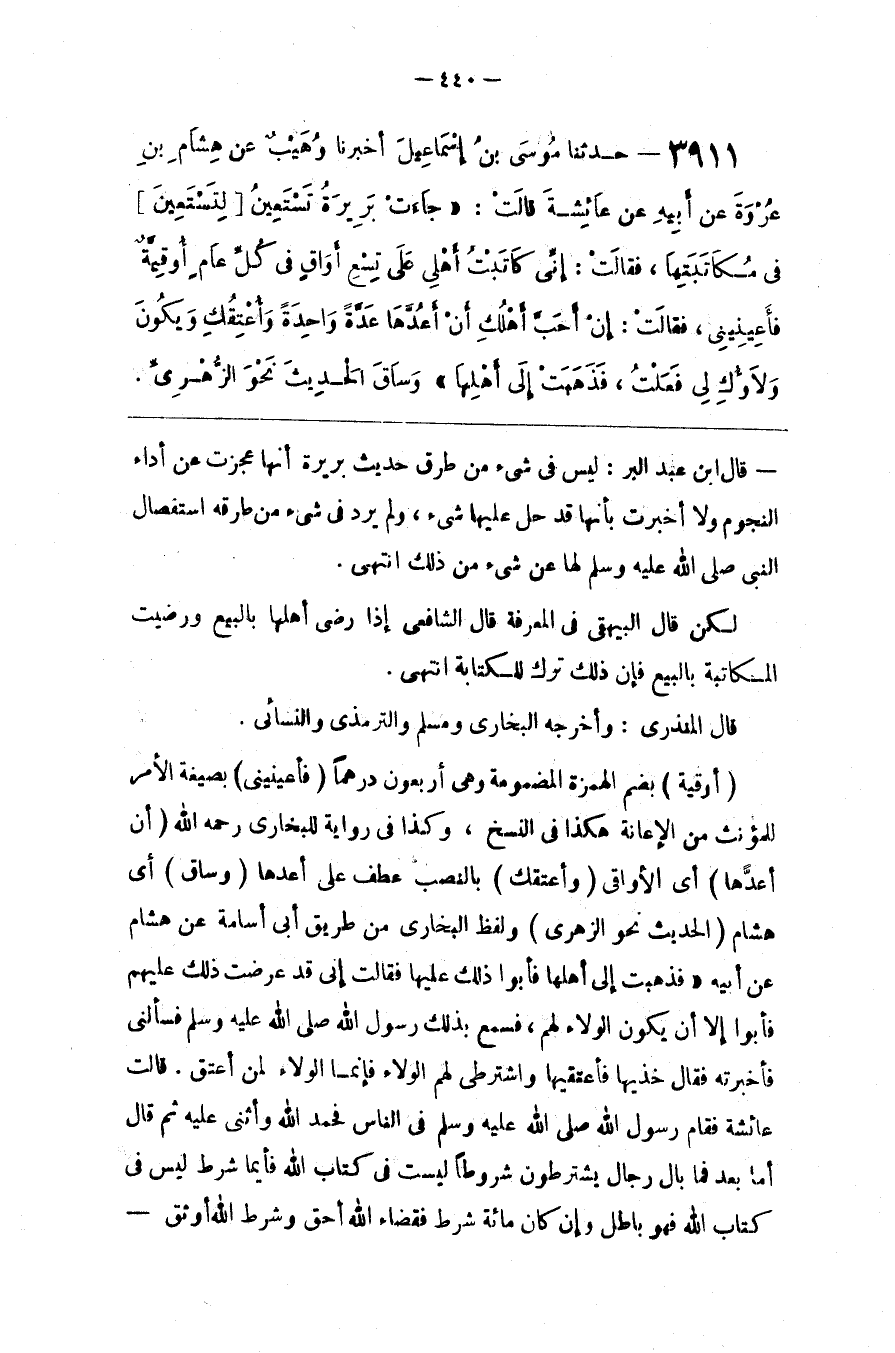 — ٤٤٠ —
٣٩١١ — حـدثنا مُوسَى بنُ إِسْمَاعِيلَ أخبرنا وُهَيْبٌ عن هِشَامِ بنِ
عُرْوَةَ عن أَبِيهِ عن عَائِشَـةَ قالَتْ : « جاءَتْ بَرِيرَةُ تَسْتَعِينُ [ لِتَسْتَعِينَ ]
فى مُـكَاتَبَتِهَا ، فقالَتْ : إِنِّى كَاتَبْتُ أَهْلِى عَلَى تِسْعِ أَوَاقٍ فى كُـلِّ عَامٍ أُوقِيَّةٌ
فأَعِينِينِى ، فقالَتْ : إِنْ أَحَبَّ أَهْلُكِ أَنْ أَعُدَّهَا عَدَّةً وَاحِدَةً وَأُعْتِقُكِ وَيَكُونَ
وَلاَؤُكِ لِى فَعَلْتُ ، فَذَهَبَتْ إِلَى أَهْلِهَا » وَسَاقَ الْحَـدِيثَ نَحْوَ الزُّهْـرِىِّ .
— قال ابن عبد البر : ليس فى شىء من طرق حديث بريرة أنها عجزت عن أداء
النجوم ولا أخبرت بأنها قد حل عليها شىء ، ولم يرد فى شىء من طرقه استفصال
النبى صلى الله عليه وسلم لها عن شىء من ذلك انتهى .
لـكن قال البيهقى فى المعرفة قال الشافعى إذا رضى أهلها بالبيع ورضيت
المـكاتبة بالبيع فإن ذلك ترك للـكتابة انتهى .
قال المنذرى : وأخرجه البخارى ومسلم والترمذى والنسائى .
( أوقية ) بضم الهمزة المضمومة وهى أربعون درهماً ( فأعينينى ) بصيغة الأمر
للمؤنث من الإعانة هكذا فى النسخ ، وكذا فى رواية للبخارى رحمه الله ( أن
أعدَّها ) أى الأواقى ( وأعتقك ) بالنصب عطف على أعدها ( وساق ) أى
هشام ( الحديث نحو الزهرى ) ولفظ البخارى من طريق أبى أسامة عن هشام
عن أبيه « فذهبت إلى أهلها فأبوا ذلك عليها فقالت إنى قد عرضت ذلك عليهم
فأبوا إلا أن يكون الولاء لهم ، فسمع بذلك رسول الله صلى الله عليه وسلم فسألنى
فأخبرته فقال خذيها فأعتقيها واشترطى لهم الولاء فإنمـا الولاء لمن أعتق . قالت
عائشة فقام رسول الله صلى الله عليه وسلم فى الناس فحمد الله وأثنى عليه ثم قال
أما بعد فما بال رجال يشترطون شروطاً ليست فى كتاب الله فأيما شرط ليس فى
كتاب الله فهو باطل وإن كان مائة شرط فقضاء الله أحق وشرط الله أوثق —